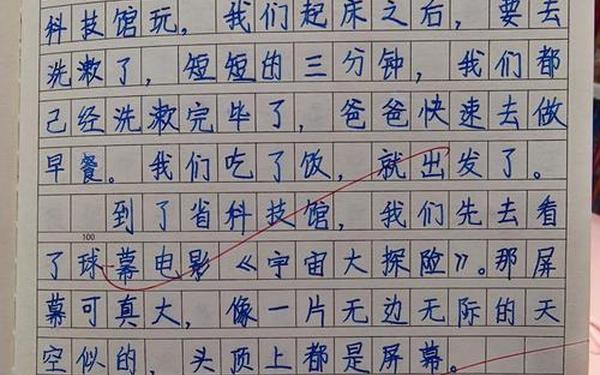 科技馆玩，我们起床之后，要去
洗漱了，短短的三分钟，我们都
己经洗漱完毕了，爸爸快速去做
早餐。我们吃了饭，就出发了。
到了省科技馆，我们先去看
100
了球幕电影《宇宙大探险》。那屏
幕可真大，像一片无边无际的天
空似的，头顶上都是屏幕。